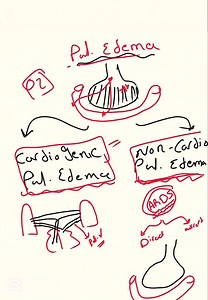 Pul. Edema
P2
Cardiogenic
Pul. Edema
Non-Cardio
Pul. Edema
ARDS
Direct